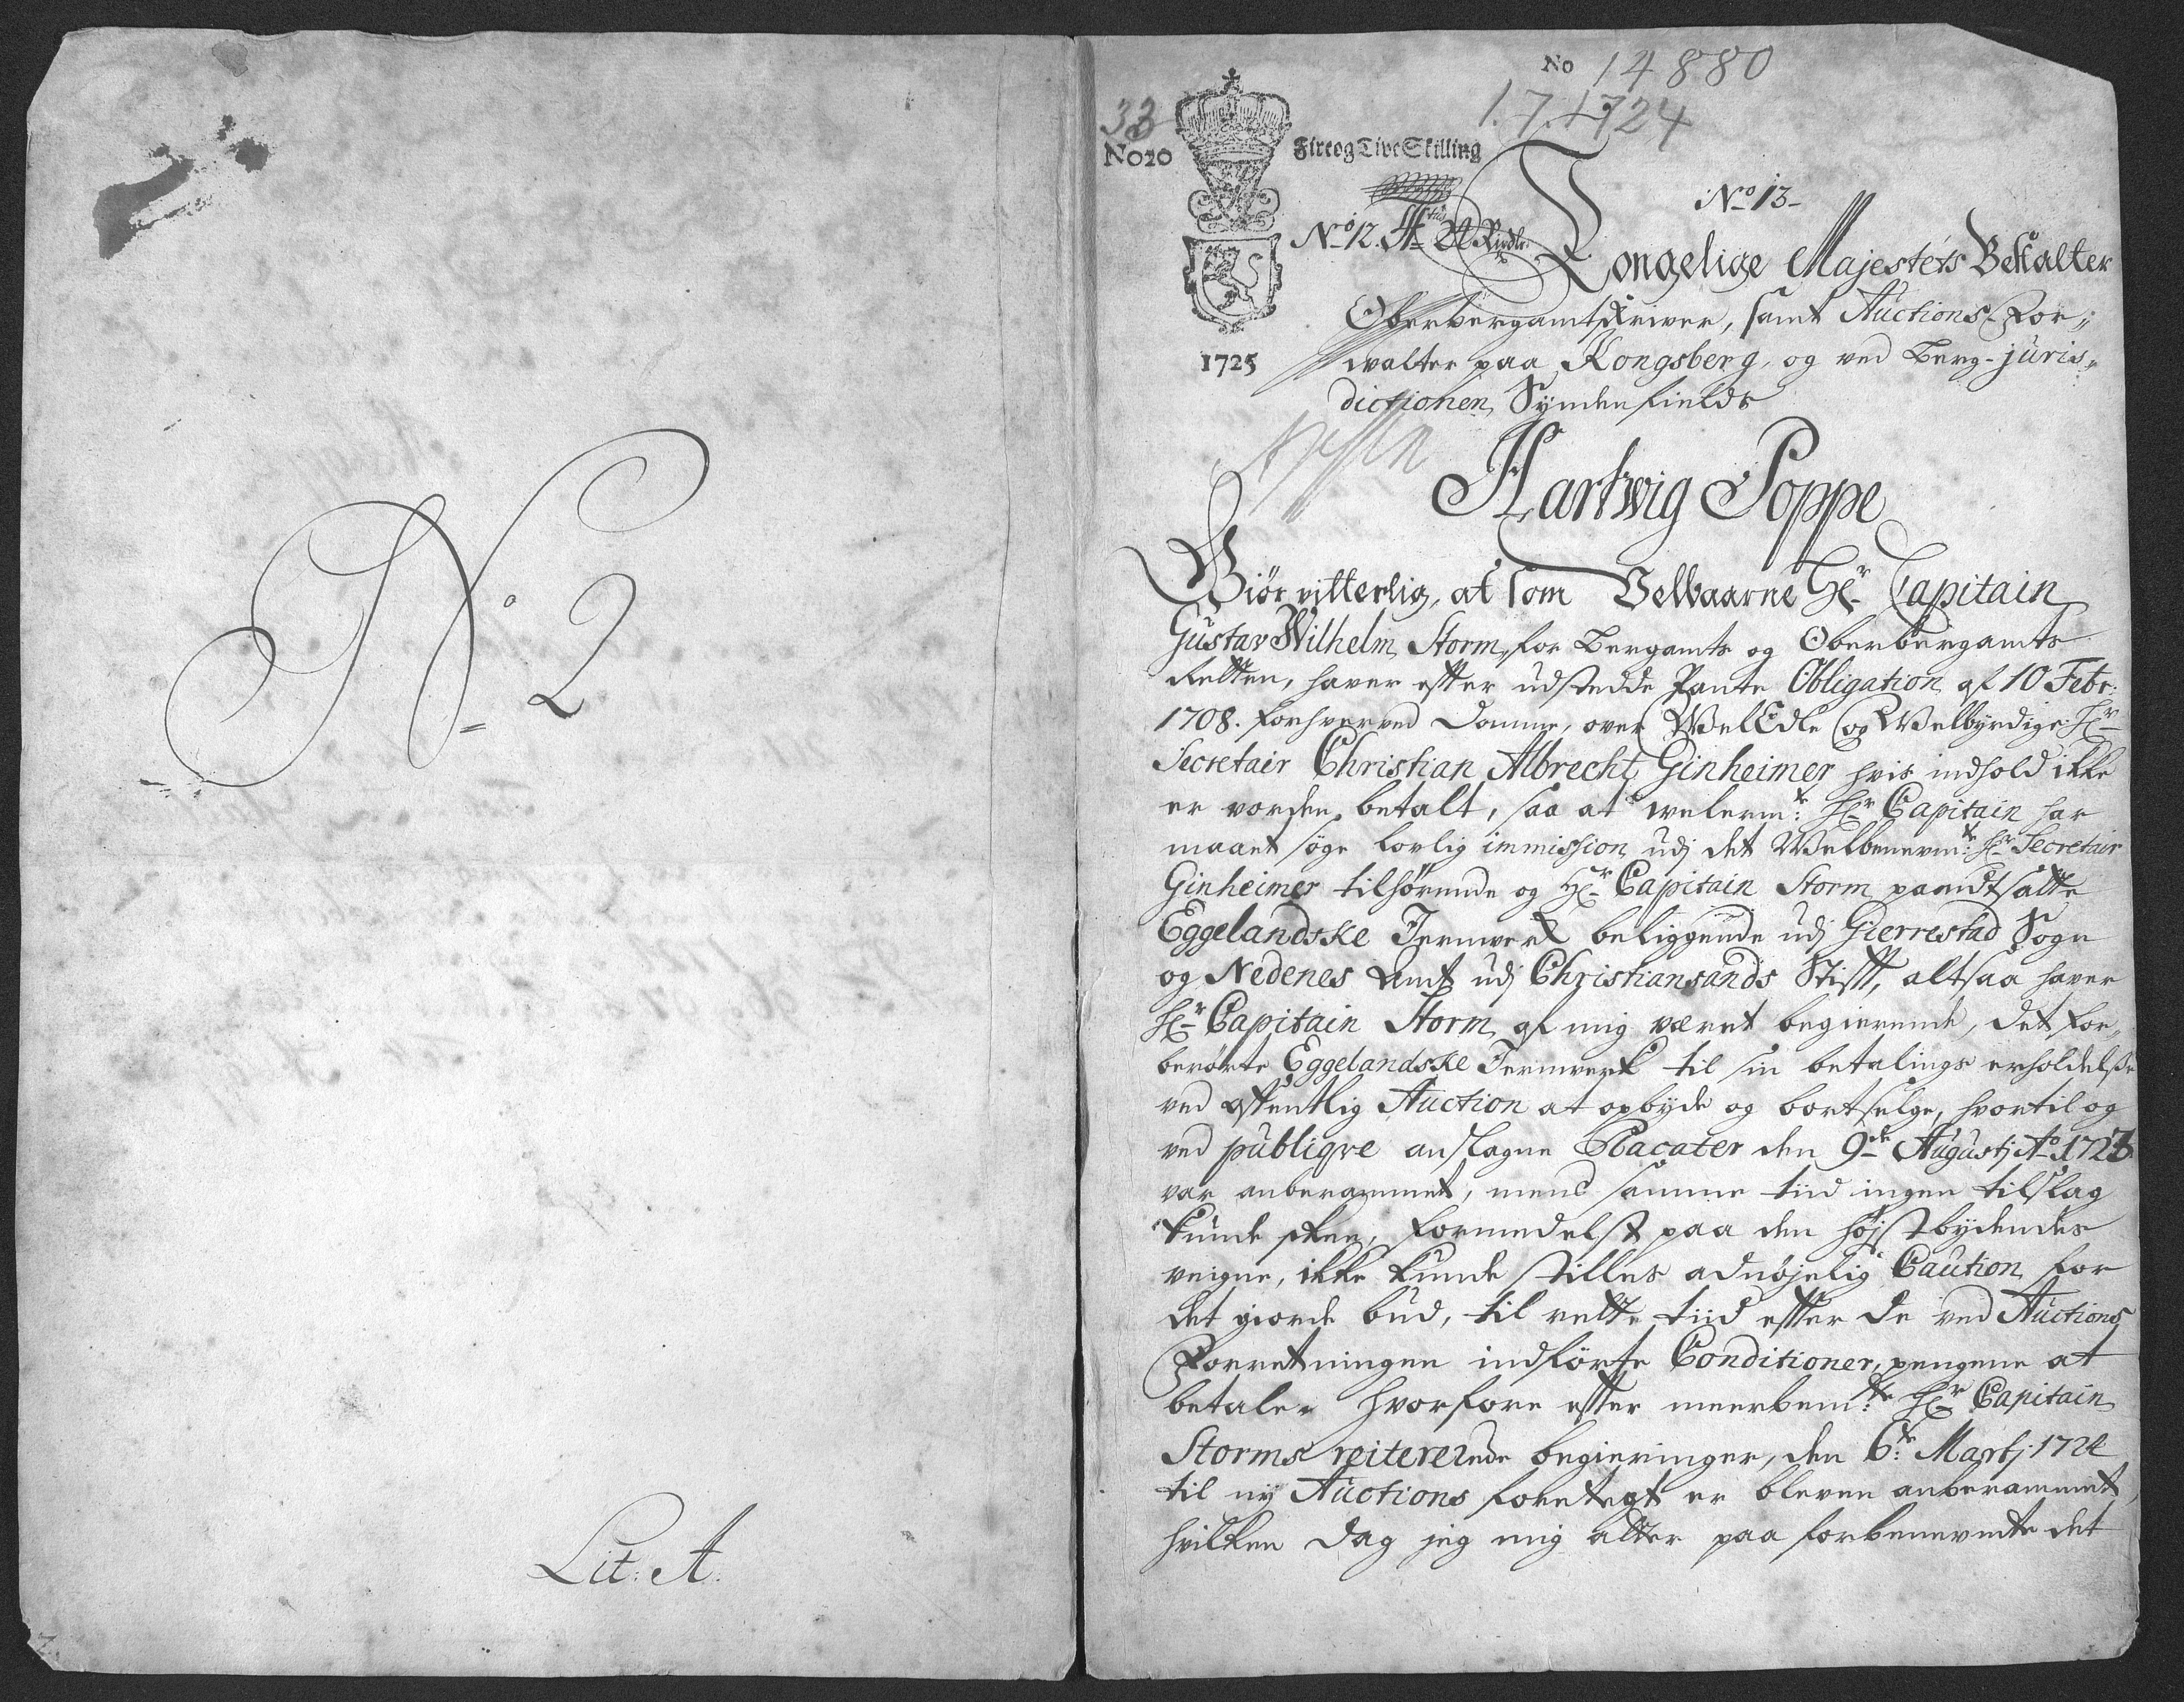 No 2
Lit: A.
No 14880
1.7.1724
33
No 20
Fire og Tive Skilling
No 13-
No 12.
1725
Kongelige Majestets Bestalter
Oberbergamtskriver, samt Auctions-For„
walter paa Kongsberg, og ved Berg-juris„
dictionen Syndenfields
Hartwig Poppe
Giør vitterlig, at som Velbaarne Hr Capitain
Gustav Wilhelm Storm, for Bergamts og Oberbergamts
Retten, haver efter udstedde Pante Obligation af 10 Febr:
1708. forhverved Domme, over WelEdle og Welbyrdige Hr
Secretair Christian Albrecht Ginheimer hvis indhold ikke
er vorden betalt, saa at welerm:te Hr Capitain har
maaet søge lovlig immission udj det Welbenevn:te Hr Secretair
Ginheimer tilhørende og Hr Capitain Storm pandtsatte
Eggelandske Jernwerk beliggende udj Gierrestad Sogn
og Nedenes Amt udj Christiansands Stift, altsaa haver
Hr Capitain Storm af mig været begierende, det for„
berørte Eggelandske Jernwerk til sin betalings erholdelse
ved offentlig Auction at opbyde og bortselge, hvortil og
ved publiqve anslagne Placater den 9de Augustj Ao 1723
var anberammet, mens samme tiid ingen tilslag
kunde skee, formedelst paa den højstbydendes
veigne, ikke kunde stilles adnøjelig Caution for
det giorde bud, til rette tiid efter de ved Auctions
Forretningen indførte Conditioner, pengene at
betale. Hvorfore efter meerbem:te Hr Capitain
Storms reitererede begieringer, den 6te Martj 1724
til ny Auctions foretagt er bleven anberammet,
hvilken dag jeg mig atter paa forbenevnte det